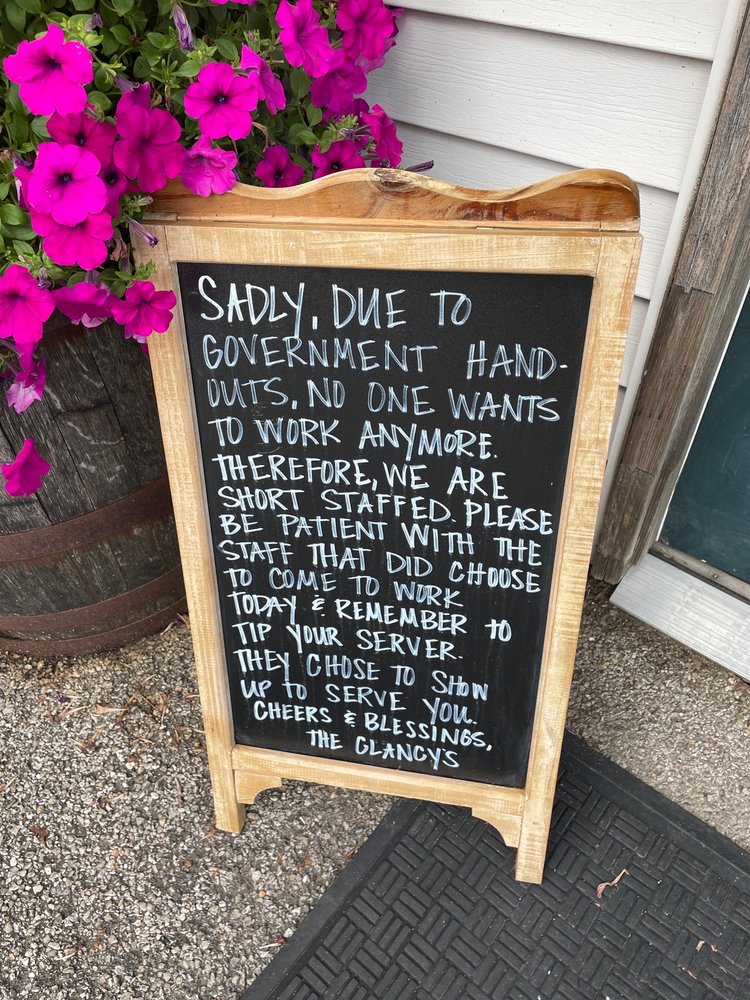 SADLY, DUE TO
GOVERNMENT HAND-
OUTS, NO ONE WANTS
TO WORK ANYMORE.
THEREFORE, WE ARE
SHORT STAFFED. PLEASE
BE PATIENT WITH THE
STAFF THAT DID CHOOSE
TO COME TO WORK
TODAY & REMEMBER TO
TIP YOUR SERVER.
THEY CHOSE TO SHOW
UP TO SERVE YOU.
CHEERS & BLESSINGS,
THE CLANCY'S